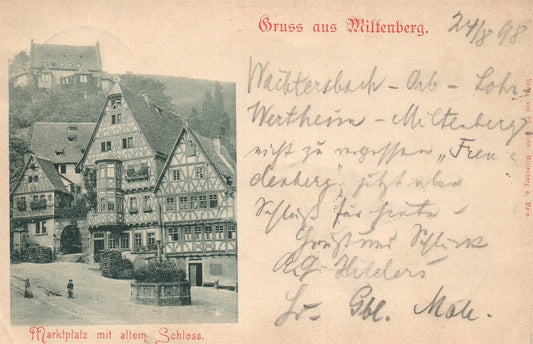 Gruss aus Miltenberg.
24/8 98
Wächtersbach - Orb - Lohr,
Wertheim - Miltenberg
nicht zu vergessen „Freu-
denberg", jetzt aber
Schluß für heute -
Gruß und
A.G. Hilders
Gbl.
Marktplatz mit altem Schloss.